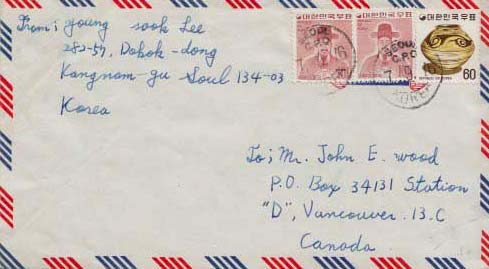 From; young sook Lee
282-57, Dohok-dong
Kangnam-gu Soul 134-03
Korea
대한민국우표
대한민국우표
대한민국우표
SEOUL
C.P.O
KOREA
SEOUL
C.P.O
KOREA
60
To; Mr. John E. wood
P.O. Box 34131 Station
"D", Vancouver. B.C
Canada